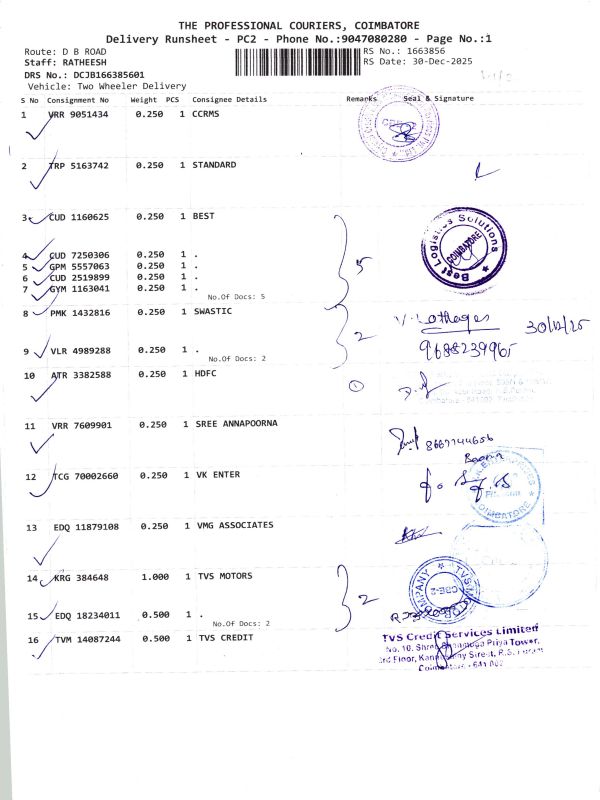 THE PROFESSIONAL COURIERS, COIMBATORE
Delivery Runsheet - PC2 - Phone No.:9047080280 - Page No.:1
Route: D B ROAD
RS No.: 1663856
Staff: RATHEESH
RS Date: 30-Dec-2025
DRS No.: DCJB166385601
Vehicle: Two Wheeler Delivery
S No Consignment No Weight PCS Consignee Details Remarks Seal & Signature
1 VRR 9051434 0.250 1 CCRMS
2 TRP 5163742 0.250 1 STANDARD
3 CUD 1160625 0.250 1 BEST
Best Logistics Solutions
COIMBATORE
4 CUD 7250306 0.250 1 .
5 GPM 5557063 0.250 1 .
5
6 CUD 2519899 0.250 1 .
7 GYM 1163041 0.250 1 .
No.Of Docs: 5
8 PMK 1432816 0.250 1 SWASTIC
30/12/25
2
9688239965
9 VLR 4989288 0.250 1 .
No.Of Docs: 2
10 ATR 3382588 0.250 1 HDFC
1
11 VRR 7609901 0.250 1 SREE ANNAPOORNA
8667744656
12 TCG 70002660 0.250 1 VK ENTER
13 EDQ 11879108 0.250 1 VMG ASSOCIATES
14 KRG 384648 1.000 1 TVS MOTORS
2
15 EDQ 18234011 0.500 1 .
No.Of Docs: 2
16 TVM 14087244 0.500 1 TVS CREDIT
TVS Credit Services Limited
No. 10, Shree Shanmuga Priya Tower,
3rd Floor, Kannusamy Street, R.S. Puram
Coimbatore - 641 002